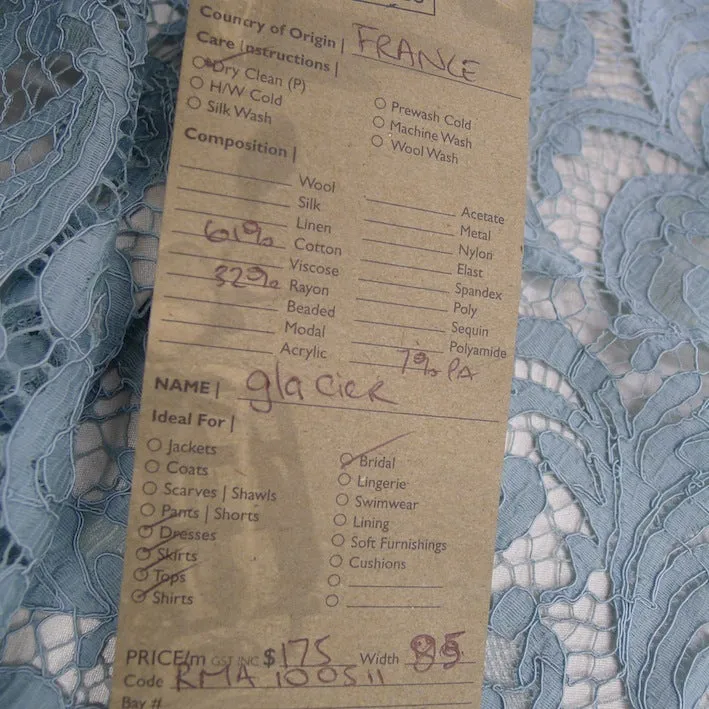 Country of Origin | FRANCE
Care Instructions |
Dry Clean (P)
H/W Cold
Silk Wash
Prewash Cold
Machine Wash
Wool Wash
Composition |
Wool
Silk
Linen
61% Cotton
Viscose
32% Rayon
Beaded
Modal
Acrylic
Acetate
Metal
Nylon
Elast
Spandex
Poly
Sequin
Polyamide
7% PA
NAME | glacier
Ideal For |
Jackets
Coats
Scarves | Shawls
Pants | Shorts
Dresses
Skirts
Tops
Shirts
Bridal
Lingerie
Swimwear
Lining
Soft Furnishings
Cushions
PRICE/m GST INC $175 Width
Code RMA 100511
Bay #